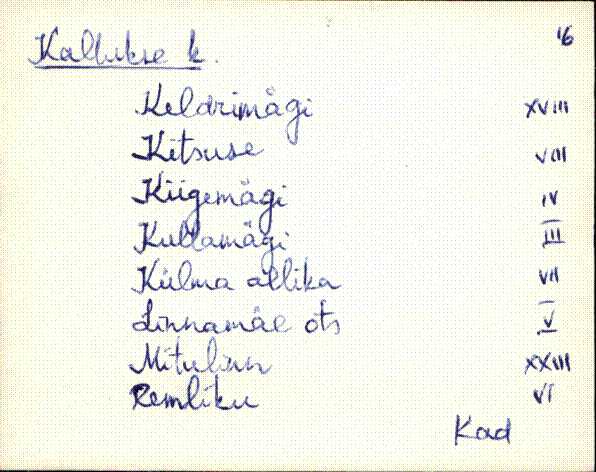 Kallukse k. 16
Keldrimägi XVIII
Kitsuse VIII
Kiigemägi IV
Kullamägi III
Külma allika VII
Linnamäe ots V
XXIII
Remliku VI
Kad